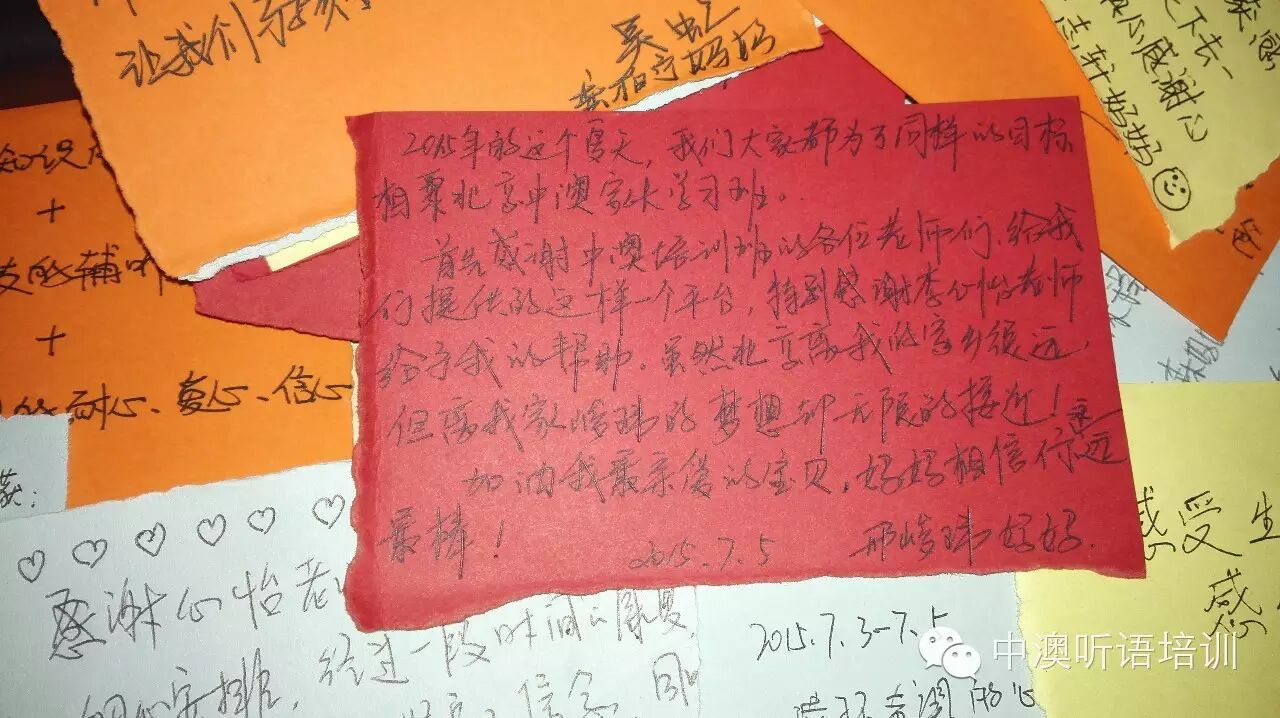 让我们
吴虹
妈妈
下去
感谢
轩妈妈
知识
+
+
耐心、爱心、信心
2015年的这个夏天,我们大家都为了同样的目标
相聚北京中澳家长学习班。
首先感谢中澳培训班的各位老师们,给我
们提供的这样一个平台,特别感谢李心怡老师
给予我的帮助。虽然北京离我的家乡很远,
但离我家峻玮的梦想却无限的接近!永
加油我最亲爱的宝贝,妈妈相信你远
最棒!
2015.7.5 邢峻玮妈妈.
获:
感受生
感
感谢心怡老
安排,经过一段时间的康复,
信念,
2015.7.3-7.5
中澳听语培训